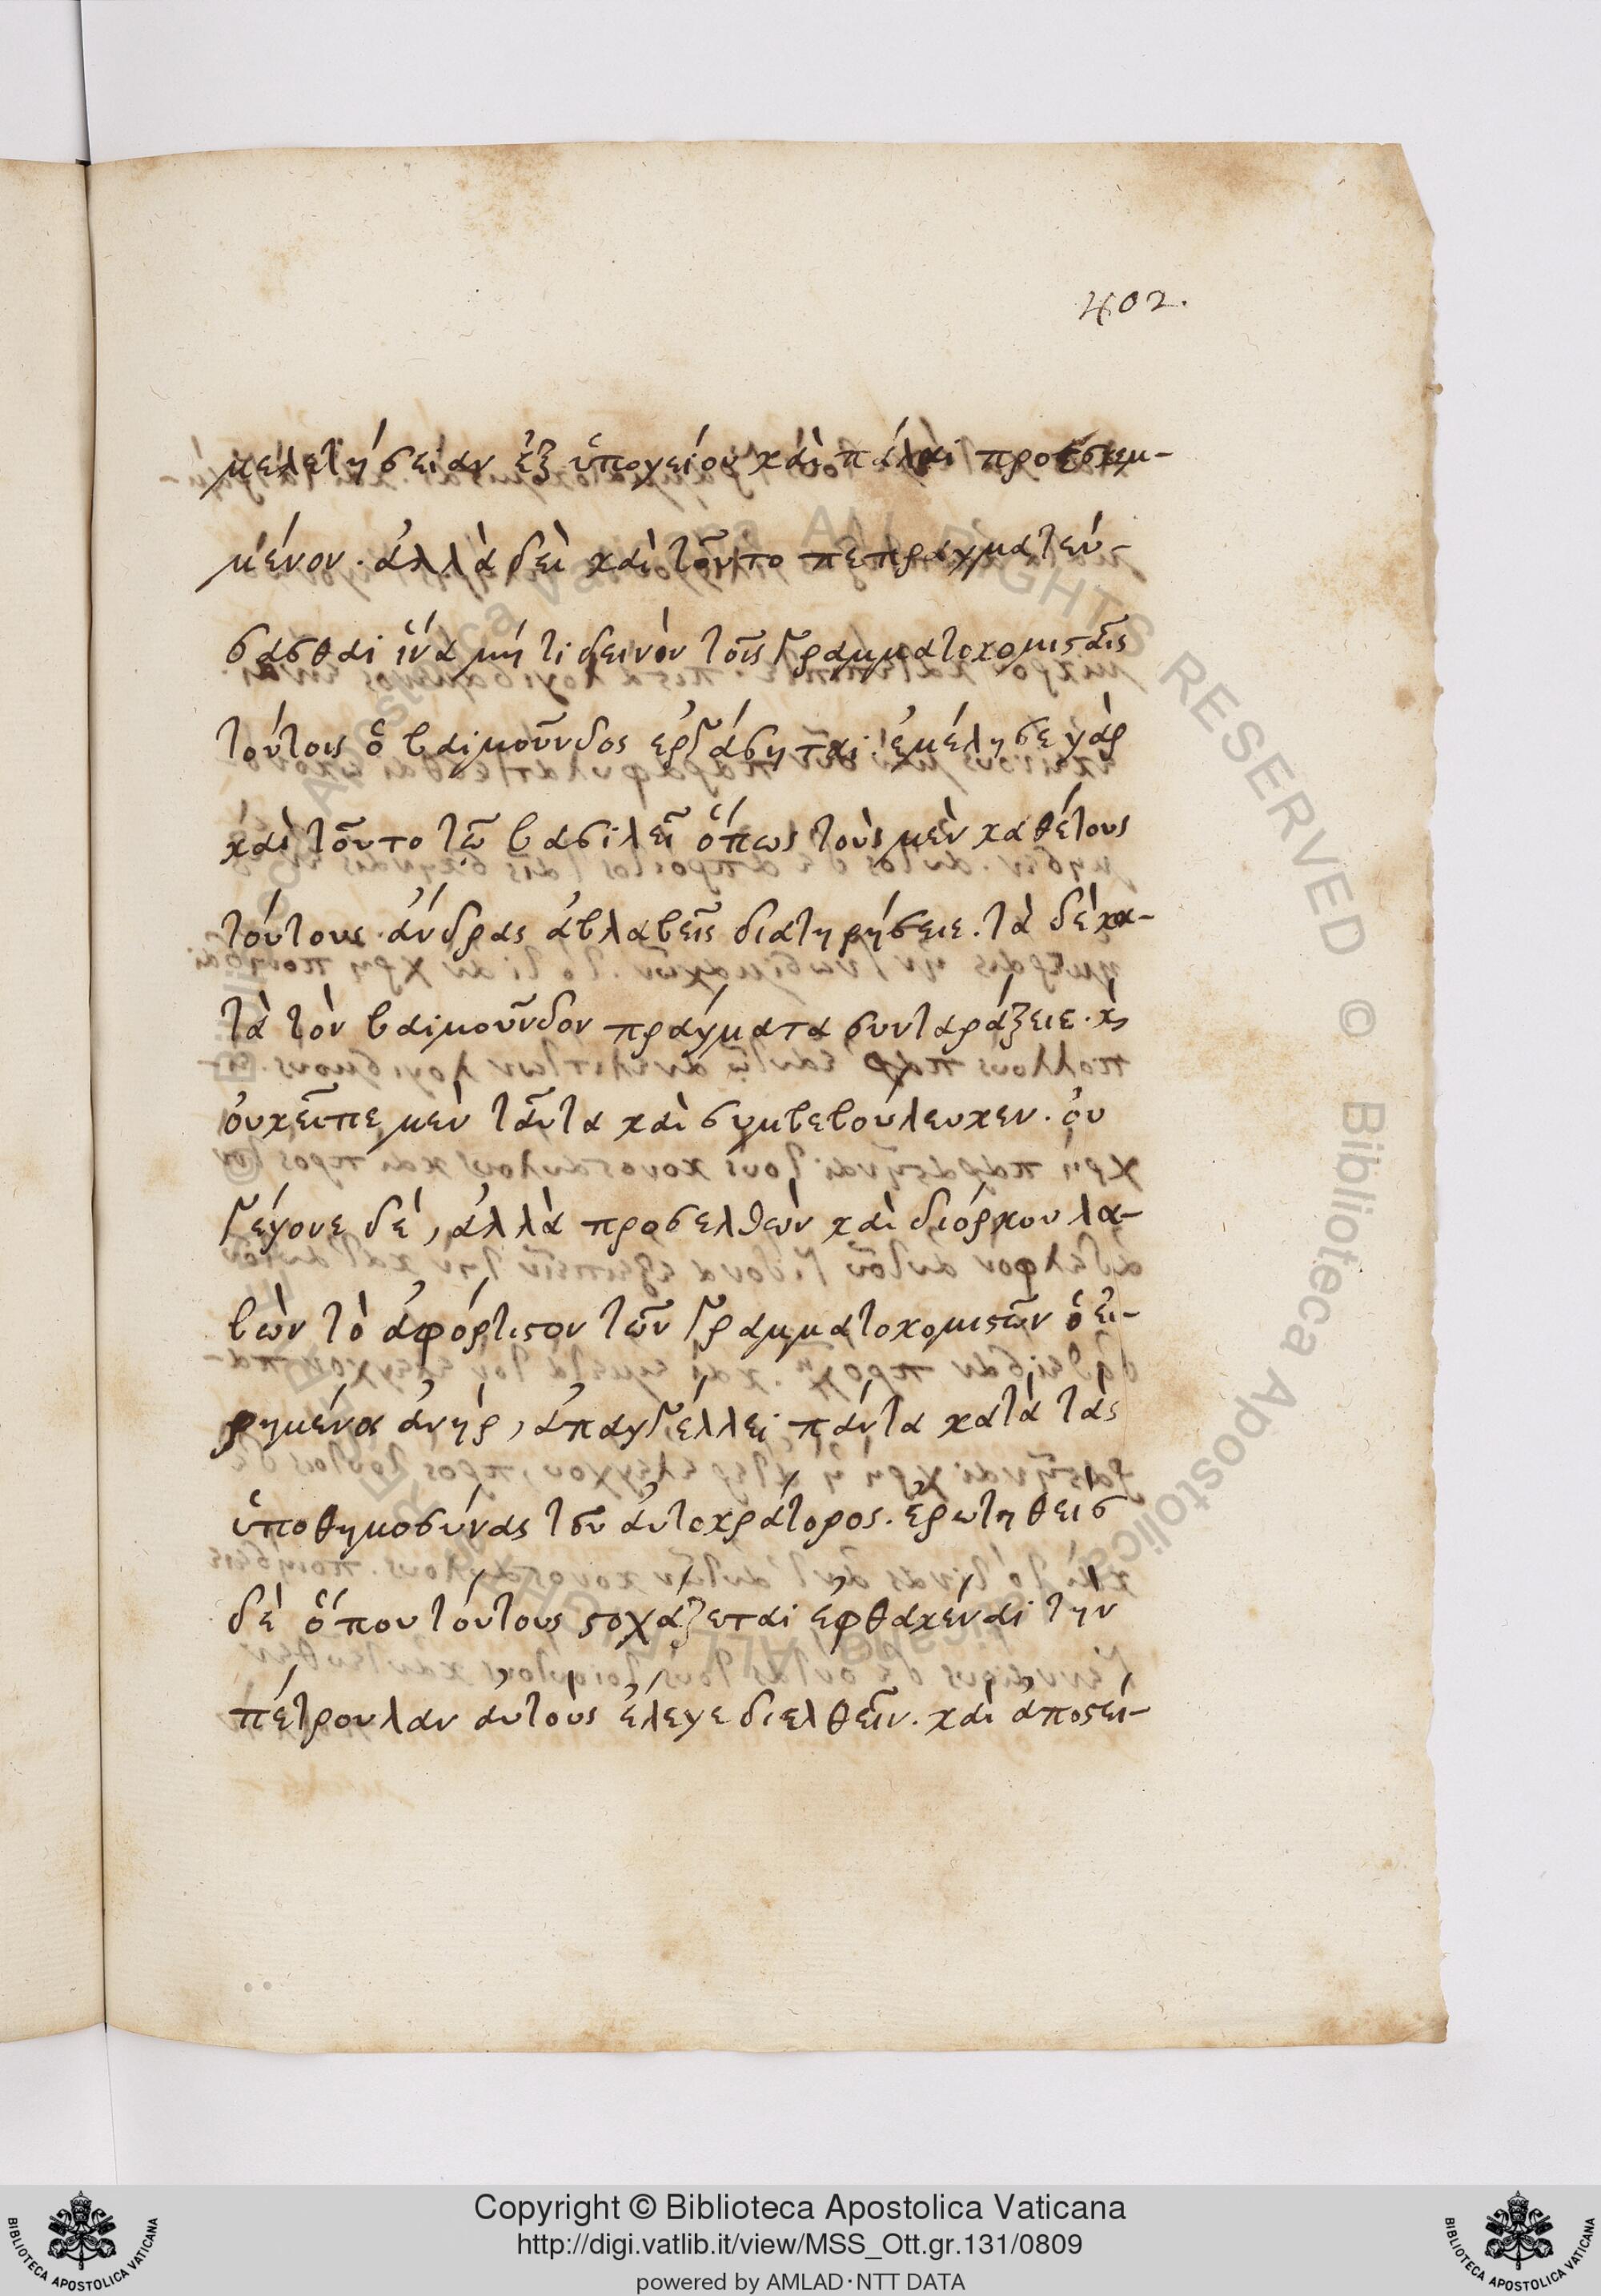 402.
μελετήσειαν ἐξ ὑπογείου καὶ πάλαι προεσκεμ-
μένον. ἀλλὰ δεὶ καὶ τοῦτο πεπραγματεύ-
σασθαι ἵνα μή τι δεινὸν τοῖς γραμματοκομισταῖς
τούτοις ὁ βαϊμοῦνδος ἐργάσηται. ἐμέλησε γὰρ
καὶ τοῦτο τῶ βασιλεῖ ὅπως τοὺς μὲν καθέτους
τούτους ἄνδρας ἀβλαβεῖς διατηρήσειε. τὰ δὲ κα-
τὰ τὸν βαϊμοῦνδον πράγματα συνταράξειε. κ
οὐκ εἶπε μὲν ταῦτα καὶ συμβεβούλευκεν. οὐ
γέγονε δέ, ἀλλὰ προσελθὼν καὶ διόρκου λα-
βὼν τὸ ἀφόρτιστον τῶν γραμματοκομιστῶν ὁ εἰ-
ρημένος ἀνήρ, ἀπαγγέλλει πάντα κατὰ τὰς
ὑποθημοσύνας τοῦ αὐτοκράτορος. ἐρωτηθεὶσ
δὲ ὅπου τούτους στοχάζεται ἐφθακέναι τὴν
πέτρουλαν αὐτοὺς ἔλεγε διελθεῖν. καὶ ἀποστεί-
Copyright © Biblioteca Apostolica Vaticana
http://digi.vatlib.it/view/MSS_Ott.gr.131/0809
powered by AMLAD·NTT DATA
BIBLIOTECA APOSTOLICA VATICANA
BIBLIOTECA APOSTOLICA VATICANA